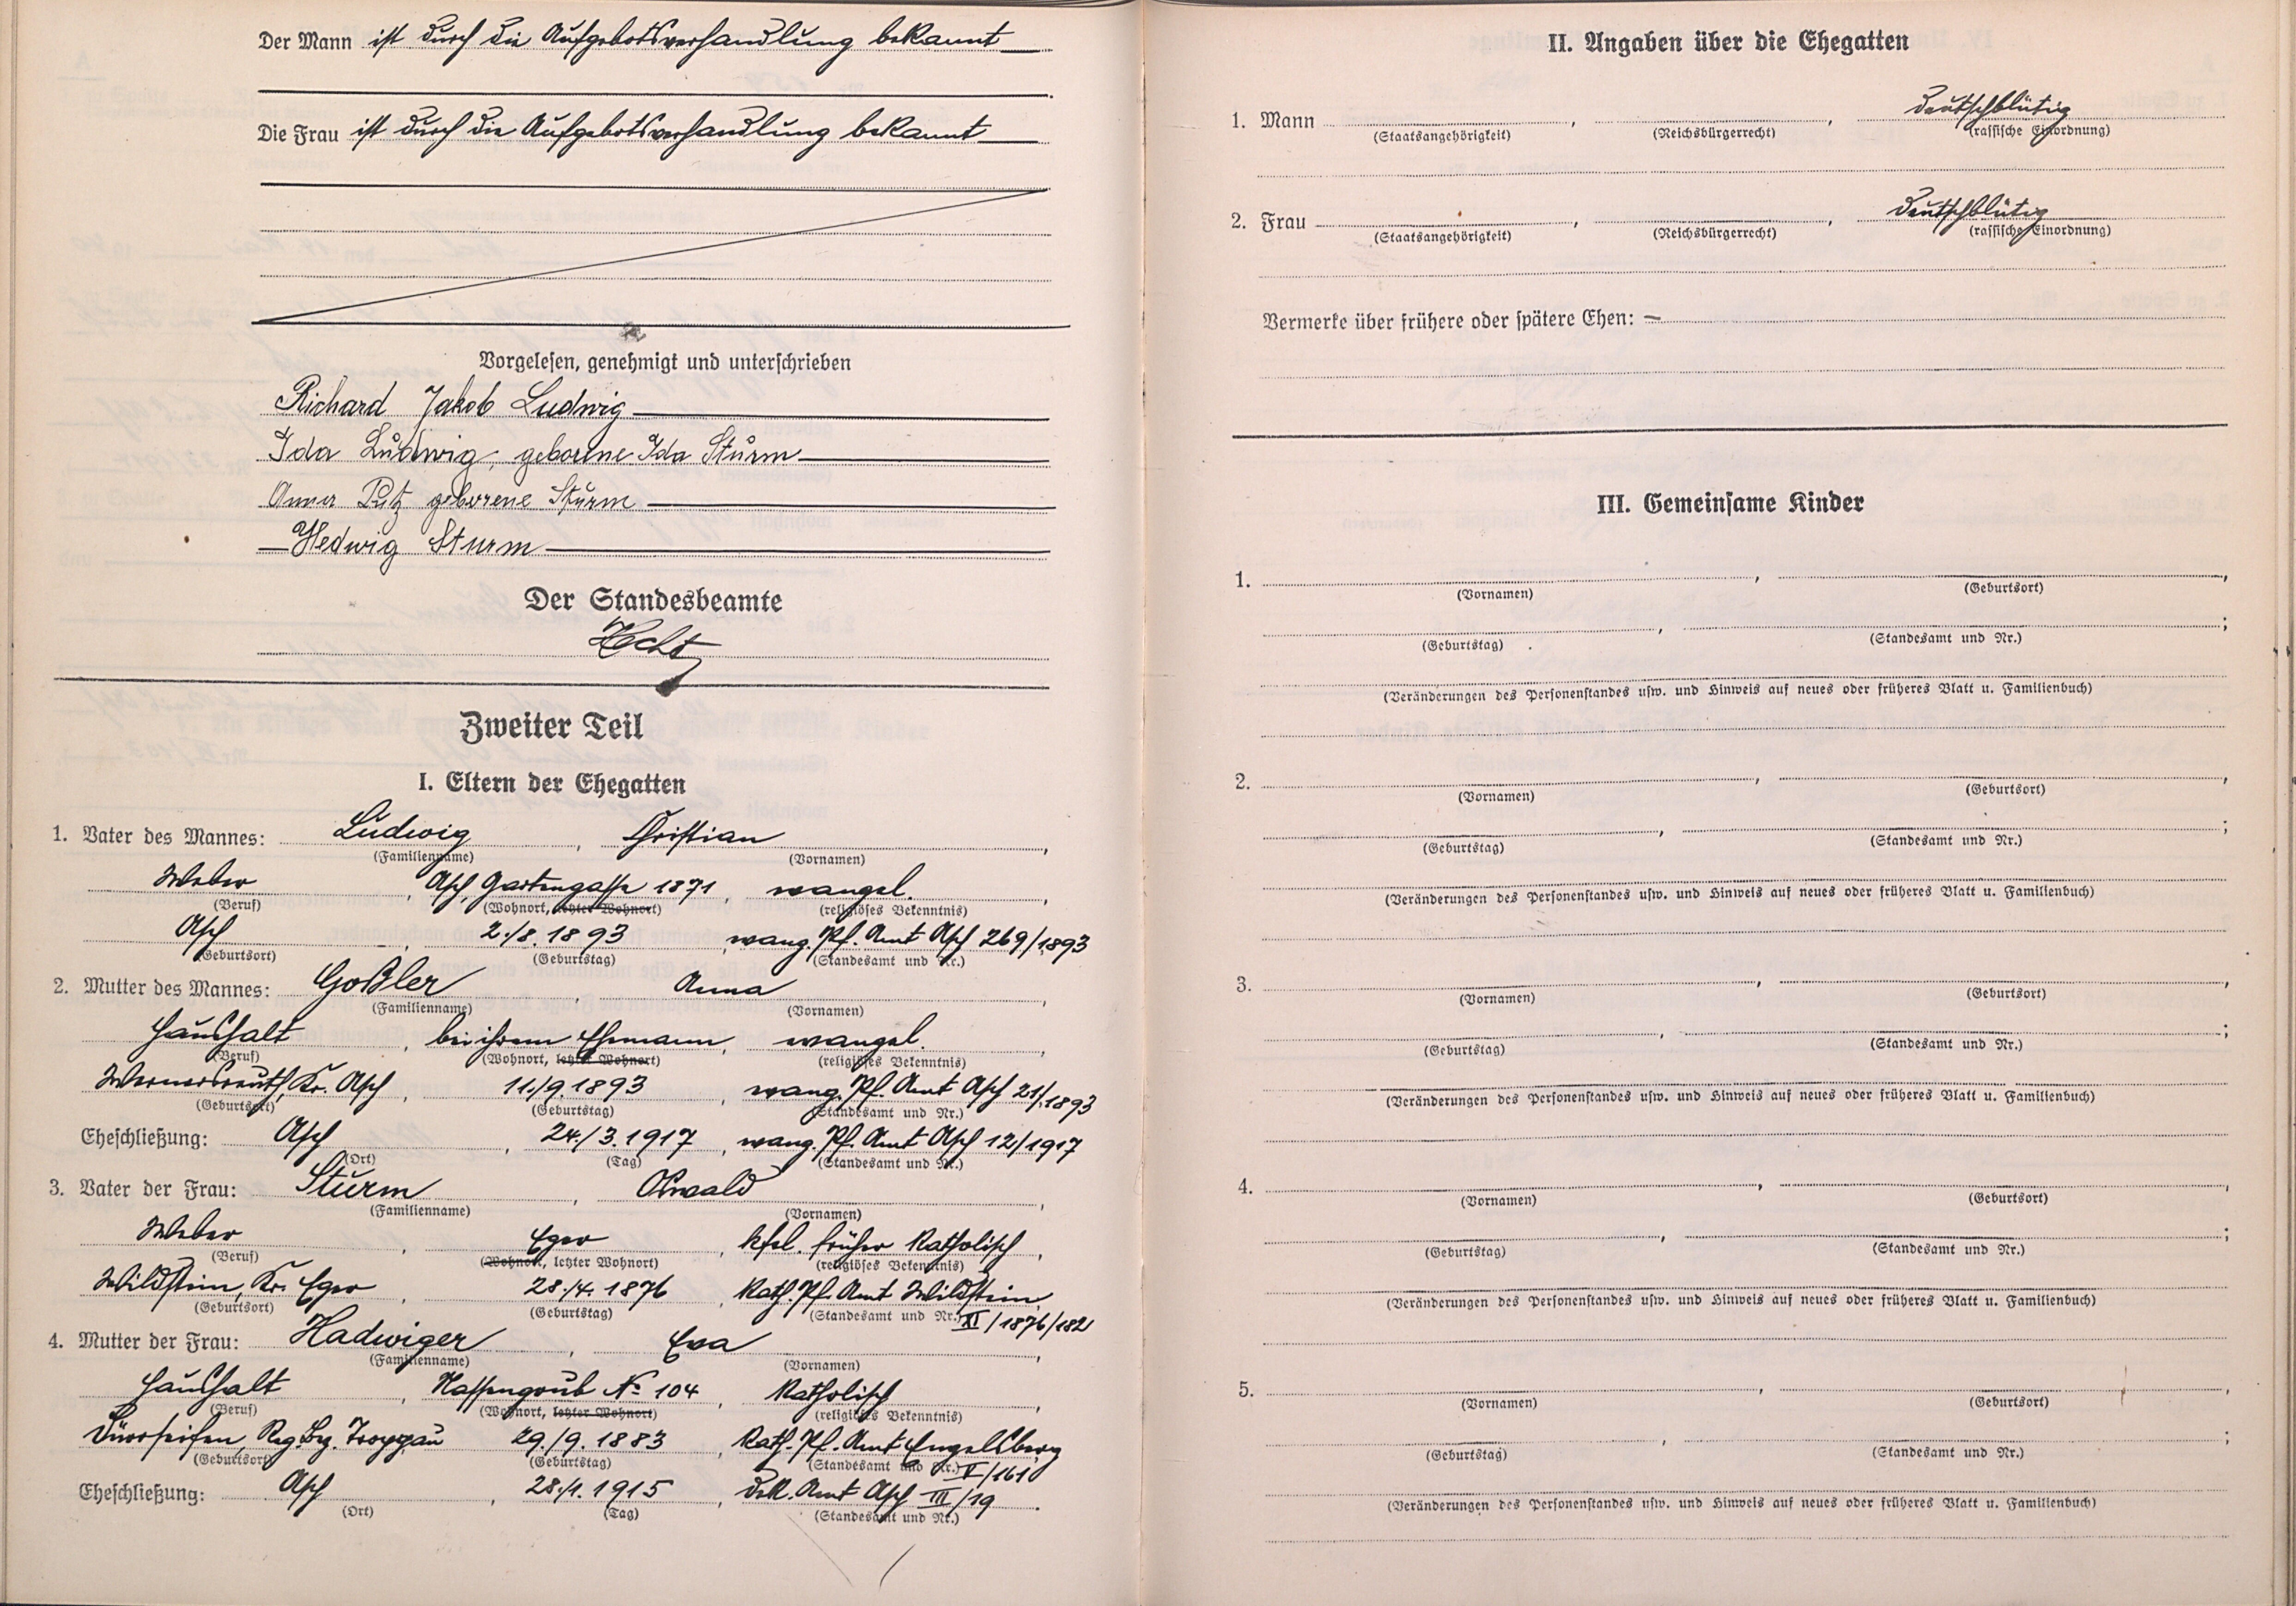 Der Mann ist durch die Aufgebotsverhandlung bekannt
Die Frau ist durch die Aufgebotsverhandlung bekannt
Vorgelesen, genehmigt und unterschrieben
Richard Jakob Ludwig
Ida Ludwig, geborene Ida Sturm
Anna Putz geborene Sturm
Hedwig Sturm
Der Standesbeamte
Zweiter Teil
I. Eltern der Ehegatten
1. Vater des Mannes: Ludwig, Christian,
(Familienname) (Vornamen)
Weber, Asch, Gartengasse 1871, evangel.,
(Beruf) (Wohnort, letzter Wohnort) (religiöses Bekenntnis)
Asch, 2./8.1893, evang. Pf. Amt Asch 269/1893
(Geburtsort) (Geburtstag) (Standesamt und Nr.)
2. Mutter des Mannes: Goßler, Anna,
(Familienname) (Vornamen)
Haushalt, bei ihrem Ehemann, evangel.,
(Beruf) (Wohnort, letzter Wohnort) (religiöses Bekenntnis)
Wernersreuth, Kr. Asch, 11./9.1893, evang. Pf. Amt Asch 21/1893
(Geburtsort) (Geburtstag) (Standesamt und Nr.)
Eheschließung: Asch, 24./3.1917, evang. Pf. Amt Asch 12/1917
(Ort) (Tag) (Standesamt und Nr.)
3. Vater der Frau: Sturm, Oswald,
(Familienname) (Vornamen)
Weber, Eger, kfsl. früher katholisch,
(Beruf) (Wohnort, letzter Wohnort) (religiöses Bekenntnis)
Wildstein, Kr. Eger, 28./4.1876, kath. Pf. Amt Wildstein
(Geburtsort) (Geburtstag) (Standesamt und Nr.) XI/1876/182
4. Mutter der Frau: Hadwiger, Eva,
(Familienname) (Vornamen)
Haushalt, Nassengrub No 104, katholisch,
(Beruf) (Wohnort, letzter Wohnort) (religiöses Bekenntnis)
Dürrseifen, Reg. Bez. Troppau 29./9.1883, kath. Pf. Amt Engelsberg
(Geburtsort) (Geburtstag) (Standesamt und Nr.) V/161
Eheschließung: Asch, 28./1.1915, Dek. Amt Asch III/19.
(Ort) (Tag) (Standesamt und Nr.)
II. Angaben über die Ehegatten
1. Mann , , deutschblütig
(Staatsangehörigkeit) (Reichsbürgerrecht) (rassische Einordnung)
2. Frau , , deutschblütig
(Staatsangehörigkeit) (Reichsbürgerrecht) (rassische Einordnung)
Vermerke über frühere oder spätere Ehen: —
III. Gemeinsame Kinder
1. , ,
(Vornamen) (Geburtsort)
, ;
(Geburtstag) (Standesamt und Nr.)
(Veränderungen des Personenstandes usw. und Hinweis auf neues oder früheres Blatt u. Familienbuch)
2. , ,
(Vornamen) (Geburtsort)
, ;
(Geburtstag) (Standesamt und Nr.)
(Veränderungen des Personenstandes usw. und Hinweis auf neues oder früheres Blatt u. Familienbuch)
3. , ,
(Vornamen) (Geburtsort)
, ;
(Geburtstag) (Standesamt und Nr.)
(Veränderungen des Personenstandes usw. und Hinweis auf neues oder früheres Blatt u. Familienbuch)
4. , ,
(Vornamen) (Geburtsort)
, ;
(Geburtstag) (Standesamt und Nr.)
(Veränderungen des Personenstandes usw. und Hinweis auf neues oder früheres Blatt u. Familienbuch)
5. , ,
(Vornamen) (Geburtsort)
, ;
(Geburtstag) (Standesamt und Nr.)
(Veränderungen des Personenstandes usw. und Hinweis auf neues oder früheres Blatt u. Familienbuch)